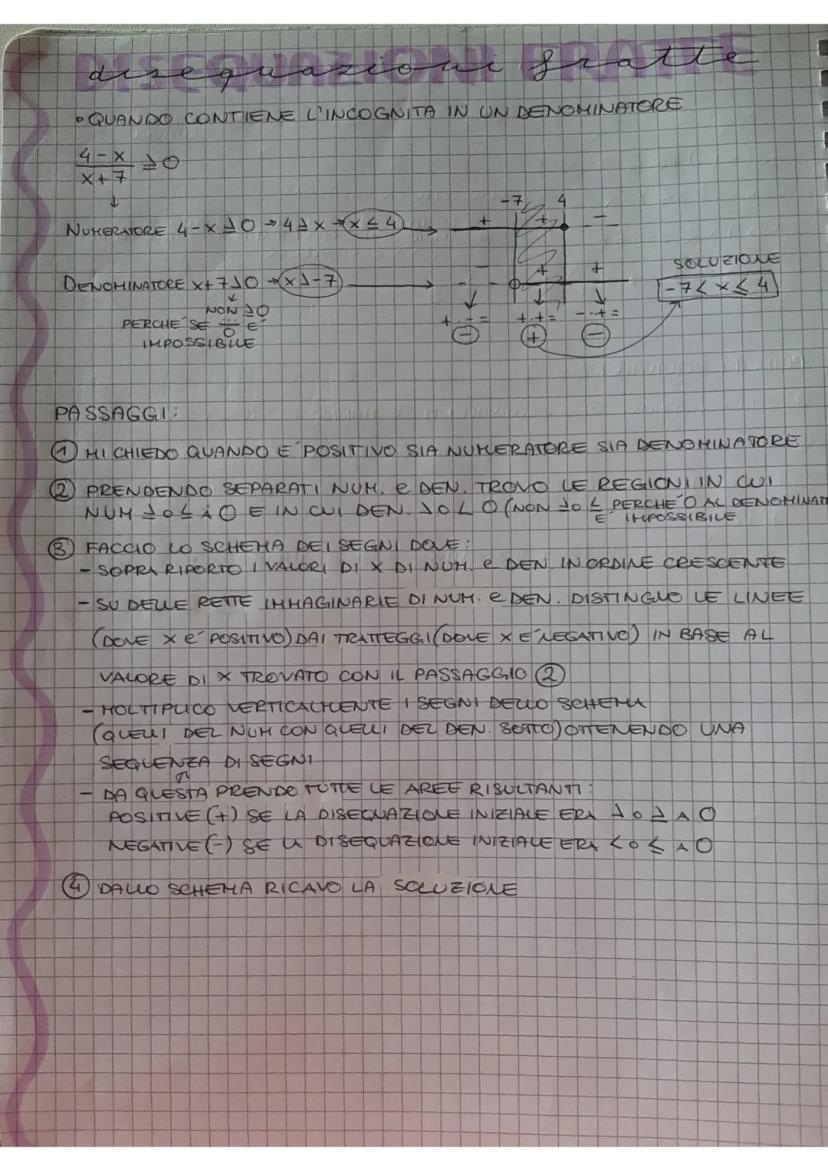 DISEQUAZIONI FRATTE
disequazioni fratte
• QUANDO CONTIENE L'INCOGNITA IN UN DENOMINATORE
4-x
x+7 ≥0
↓
-7 4
NUMERATORE 4-x≥0 → 4≥x → x≤4 → + + -
SOLUZIONE
DENOMINATORE x+7>0 → x>-7 → - + +
-7<x≤4
NON ≥0
PERCHE' SE ÷/0 E'
IMPOSSIBILE
+·-= +·+= -·+=
- + -
PASSAGGI:
① MI CHIEDO QUANDO E' POSITIVO SIA NUMERATORE SIA DENOMINATORE
② PRENDENDO SEPARATI NUM. e DEN. TROVO LE REGIONI IN CUI
NUM ≥ o ≤ A 0 E IN CUI DEN. > o < 0 (NON ≥ o ≤ PERCHE' 0 AL DENOMINAT
E' IMPOSSIBILE
③ FACCIO LO SCHEMA DEI SEGNI DOVE:
- SOPRA RIPORTO I VALORI DI X DI NUM. e DEN. IN ORDINE CRESCENTE
- SU DELLE RETTE IMMAGINARIE DI NUM. e DEN. DISTINGUO LE LINEE
(DOVE X E' POSITIVO) DAI TRATTEGGI (DOVE X E' NEGATIVO) IN BASE AL
VALORE DI X TROVATO CON IL PASSAGGIO ②
- MOLTIPLICO VERTICALMENTE I SEGNI DELLO SCHEMA
(QUELLI DEL NUM CON QUELLI DEL DEN. SOTTO) OTTENENDO UNA
SEQUENZA DI SEGNI
- DA QUESTA PRENDO TUTTE LE AREE RISULTANTI:
POSITIVE (+) SE LA DISEQUAZIONE INIZIALE ERA > o ≥ A 0
NEGATIVE (-) SE LA DISEQUAZIONE INIZIALE ERA < o ≤ A 0
④ DALLO SCHEMA RICAVO LA SOLUZIONE